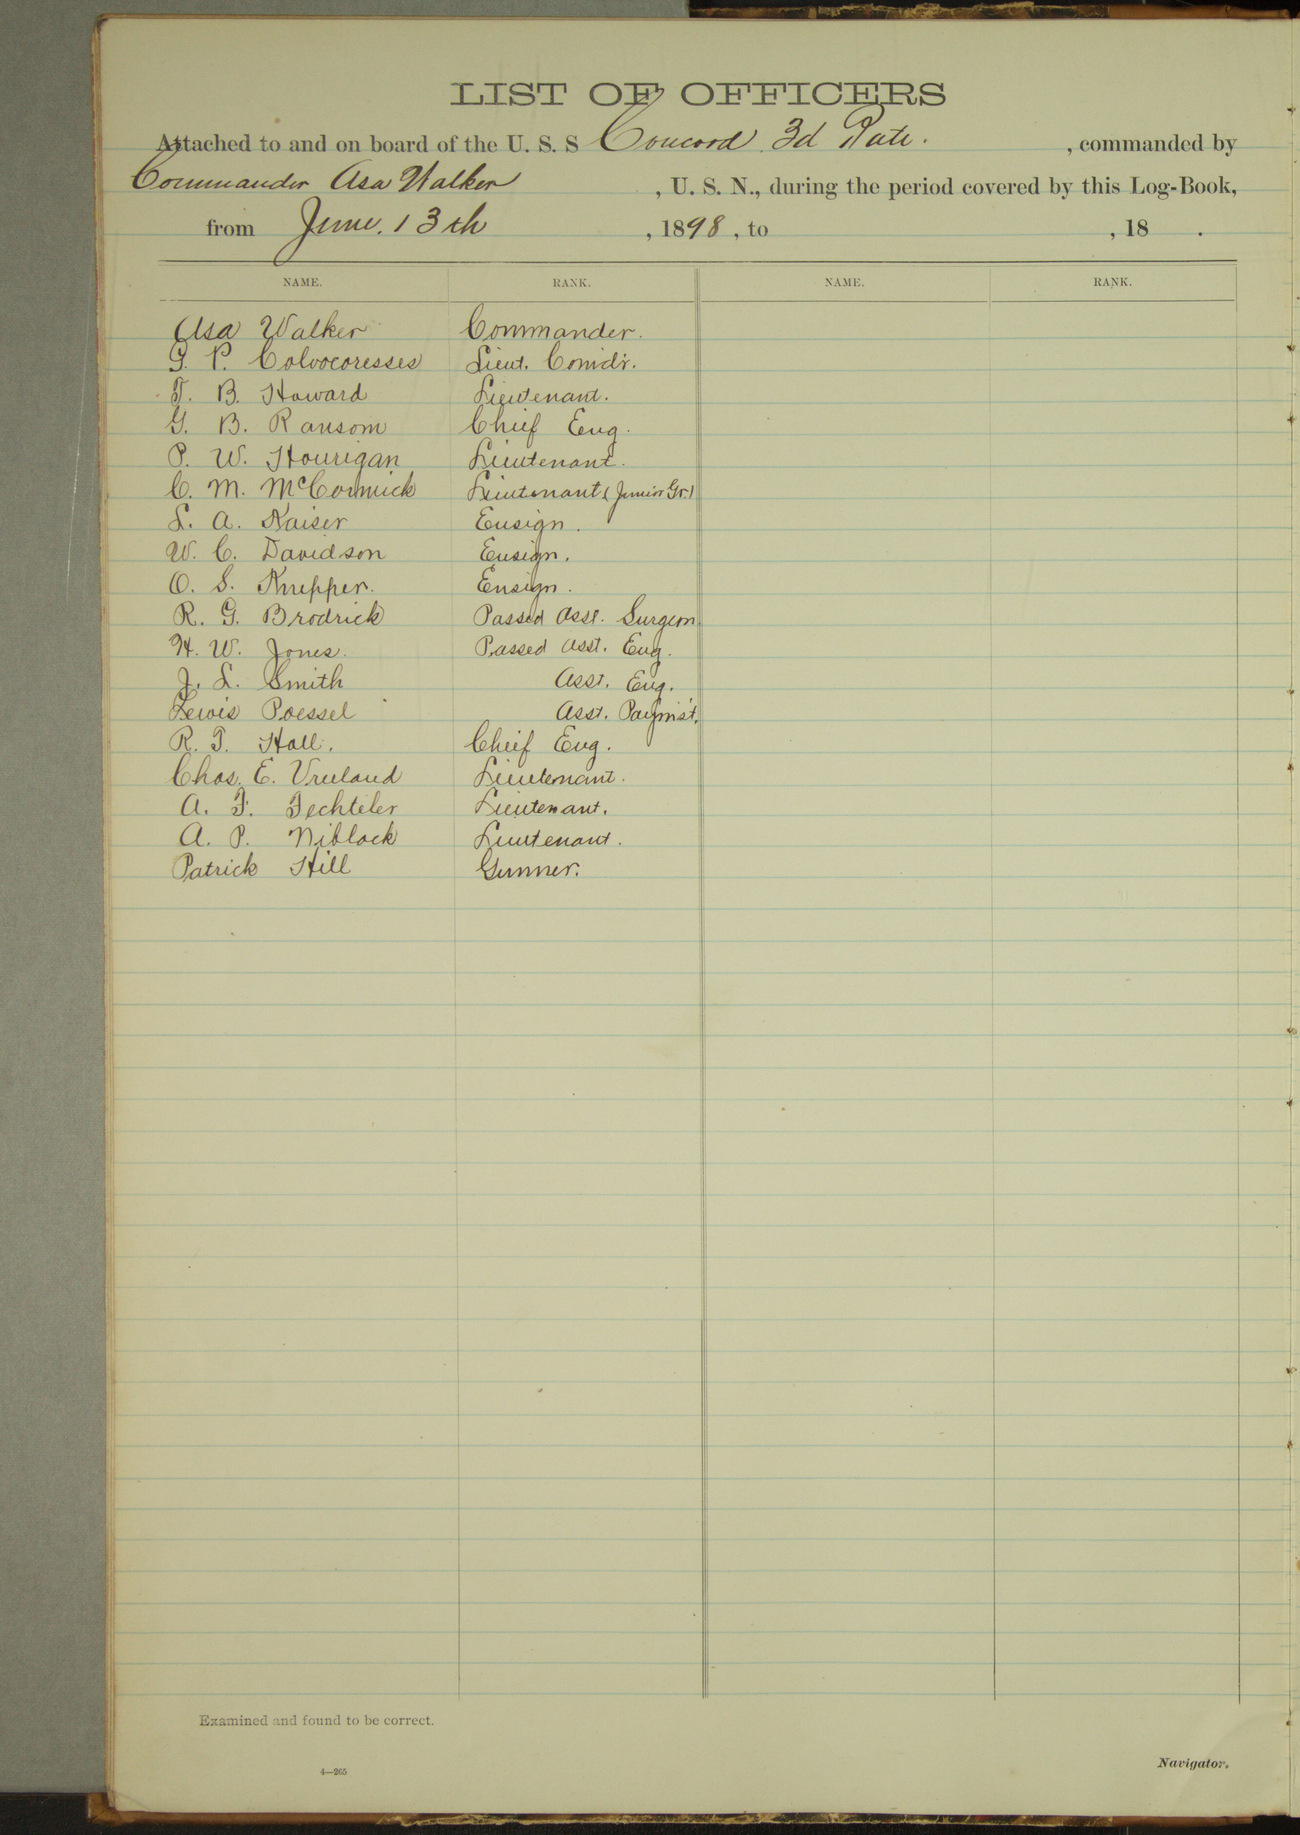 LIST OF OFFICERS
Attached to and on board of the U. S. S Concord 3d Rate. , commanded by
Commander Asa Walker , U. S. N., during the period covered by this Log-Book,
from June. 13th , 1898 , to , 18 .
NAME. RANK. NAME. RANK.
Asa Walker Commander.
G. P. Colvocoresses Lieut. Comdr.
T. B. Howard Lieutenant.
G. B. Ransom Chief Eng.
P. W. Hourigan Lieutenant.
C. M. McCormick Lieutenant (Junior Gr.)
L. A. Kaiser Ensign.
W. C. Davidson Ensign.
O. S. Knepper. Ensign.
R. G. Brodrick Passed Asst. Surgeon
H. W. Jones. Passed Asst. Eng.
J. L. Smith Asst. Eng.
Lewis Poessel Asst. Paymst.
R. T. Hall. Chief Eng.
Chas. E. Vreeland Lieutenant.
A. F. Fechteler Lieutenant.
A. P. Niblack Lieutenant.
Patrick Hill Gunner.
Examined and found to be correct.
4—265
Navigator.